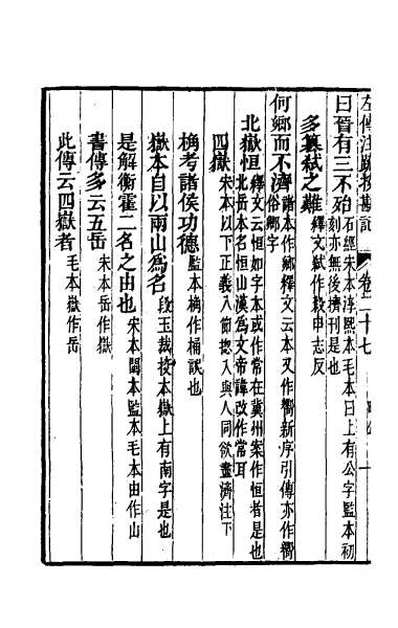 左傳注疏挍勘記 卷二十七
曰晉有三不殆 石經宋本淳熙本毛本曰上有公字監本初刻亦無後擠刊是也
多篡弑之難 釋文弑作殺申志反
何鄉而不濟 諸本作鄉釋文云本又作嚮新序引傳亦作嚮俗鄉字
北嶽恒 釋文云恒如字本或作常在冀州案作恒者是也北岳本名恒山漢爲文帝諱改作常耳
四嶽 宋本以下正義八節揔入與人同欲盡濟注下
桷考諸侯功德 監本桷作桶誤也
嶽本自以兩山爲名 段玉裁挍本嶽上有南字是也
是解衡霍二名之由也 宋本閩本監本毛本由作山
書傳多云五岳 宋本岳作嶽
此傳云四嶽者 毛本嶽作岳